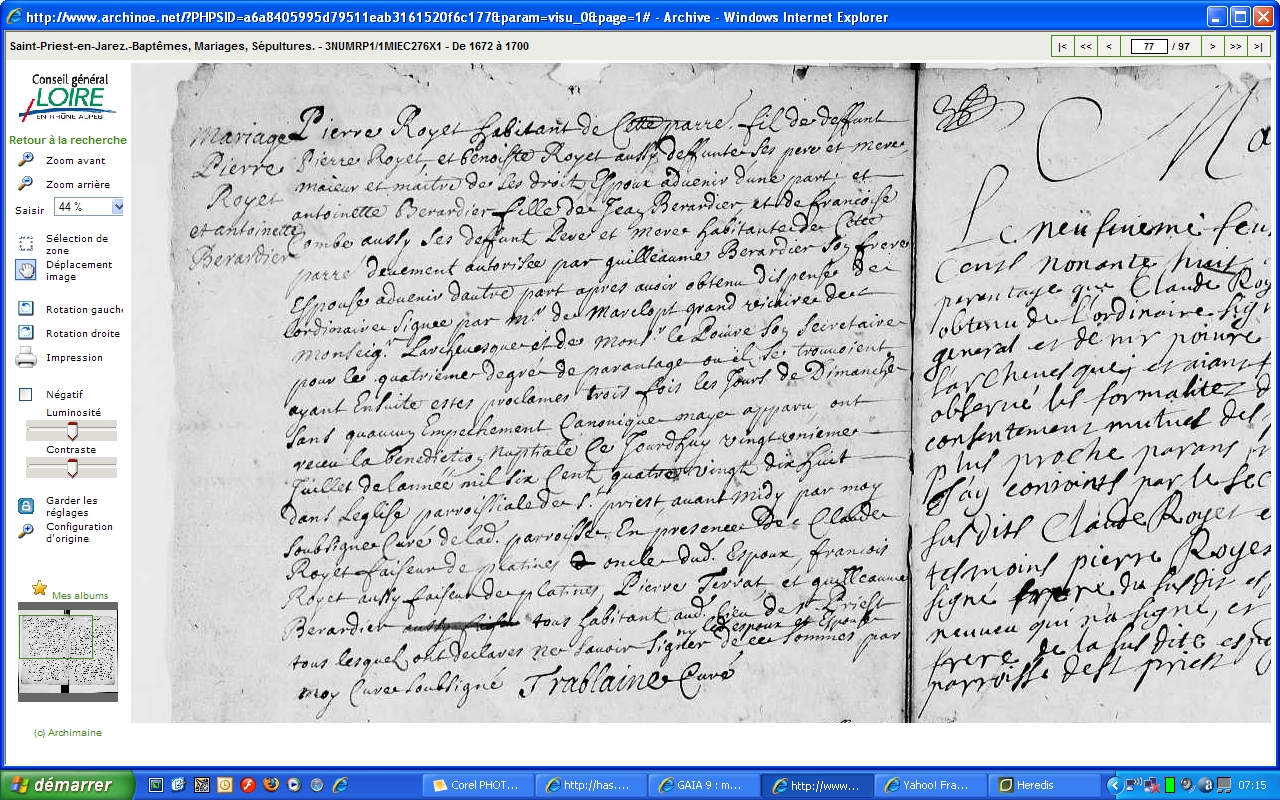 http://www.archinoe.net/?PHPSID=a6a8405995d79511eab3161520f6c177&param=visu_0&page=1# - Archive - Windows Internet Explorer
Saint-Priest-en-Jarez.-Baptêmes, Mariages, Sépultures. - 3NUMRP1/1MIEC276X1 - De 1672 à 1700
|< << < 77 / 97 > >> >|
Conseil général
LOIRE
EN RHÔNE ALPES
Retour à la recherche
Zoom avant
Zoom arrière
Saisir 44 %
Sélection de
zone
Déplacement
image
Rotation gauche
Rotation droite
Impression
Négatif
Luminosité
Contraste
Garder les
réglages
Configuration
d'origine
Mes albums
(c) Archimaine
Mariage
Pierre
Royet
et antoinette
Berardier
Pierre Royet habitant de Cette parre. fil de deffunt
Pierre Royet, et benoiste Royet aussy deffunte ses pere et mere
maieur et maitre de ses droitz Espoux advenir dune part. et
antoinette Berardier fille de Jean Berardier et de francoise
Combe aussy ses deffunt Pere et Mere habitante de Cette
parre deuement autorisée par guilleaume Berardier son frere
Espouse advenir dautre part apres avoir obtenu dispense de
lordinaire signee par mr de Marclopt grand vicaire de
Monseigr Larchevesque et de Monsr le Poivre son secretaire
pour le quatrieme degré de parantage ou il se trouvoient
ayant Ensuite estes proclames trois fois les Jours de Dimanche
sans quaucun Empechement Canonique maye apparu, ont
receu la benediction Nuptiale Ce Jourdhuy vingt
Juillet de lannée mil six Cent quatre vingt dix huit
dans Leglise parroissiale de St priest, avant midy par moy
soubsigne Cure de lad. parroisse. En presence De Claude
Royet faiseur de platines oncle dud. Espoux, francois
Royet aussy faiseur de platines, Pierre Terrat, et guilleaume
Berardier tous habitant aud. lieu de St Priest
ny L'Espoux et Espouse
tous lesquel ont declares ne savoir signer de ce sommes par
moy Cure soubsigné Trablaine Curé
Ma
Le neufvieme feu
Cens nonante huit
parantage que Claude Roy
obtenu de l'ordinaire sig
general et de mr poivre
l'archevesque, et aiant
observé les formalitez d
consentement mutuel des
plus proche parans
susdits Claude Royet e
tesmoins pierre Royet
signé frere du susdit es
neuveu qui n'a signé, et
frere de la susdite espou
parroisse de st priest
démarrer
Corel PHOT...
http://has....
GAIA 9 : m...
http://www...
Yahoo! Fra...
Heredis
07:15